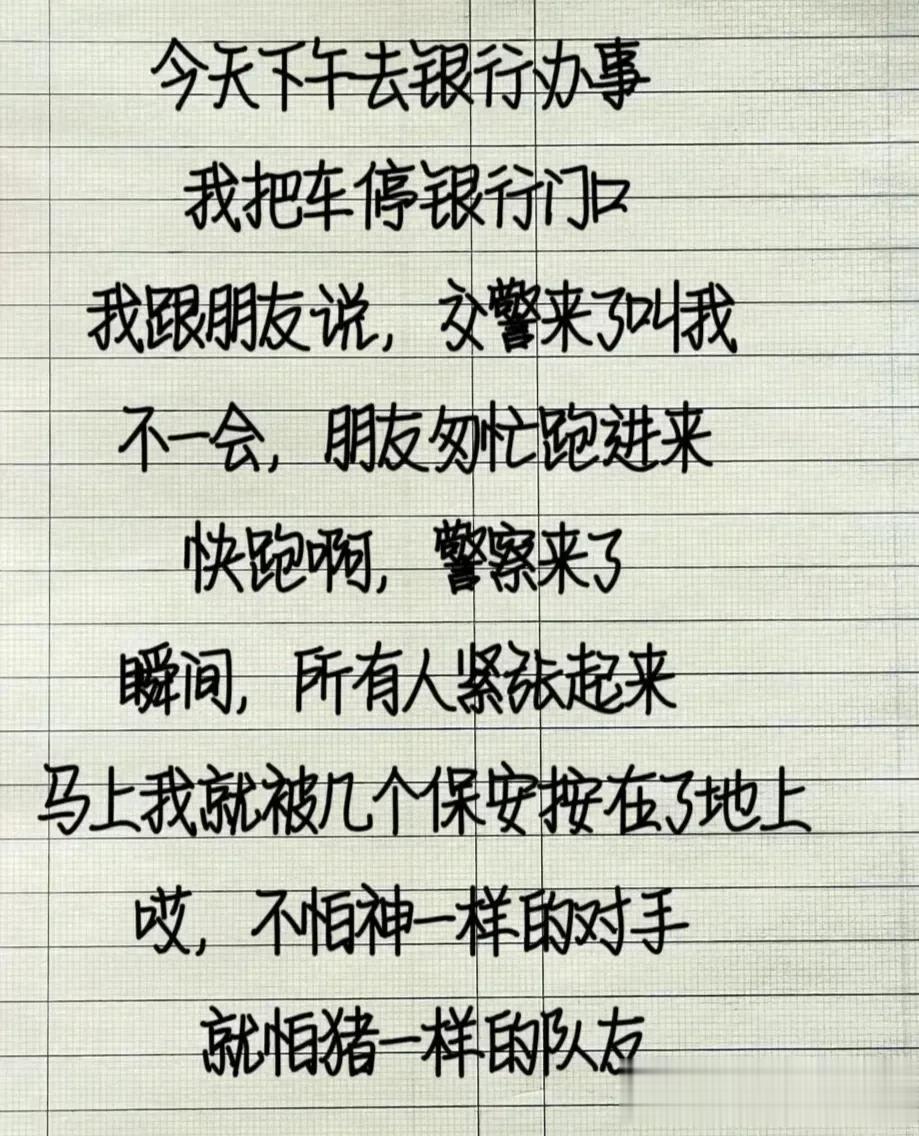 今天下午去银行办事
我把车停银行门口
我跟朋友说，交警来了叫我
不一会，朋友匆忙跑进来
快跑啊，警察来了
瞬间，所有人紧张起来
马上我就被几个保安按在了地上
哎，不怕神一样的对手
就怕猪一样的队友